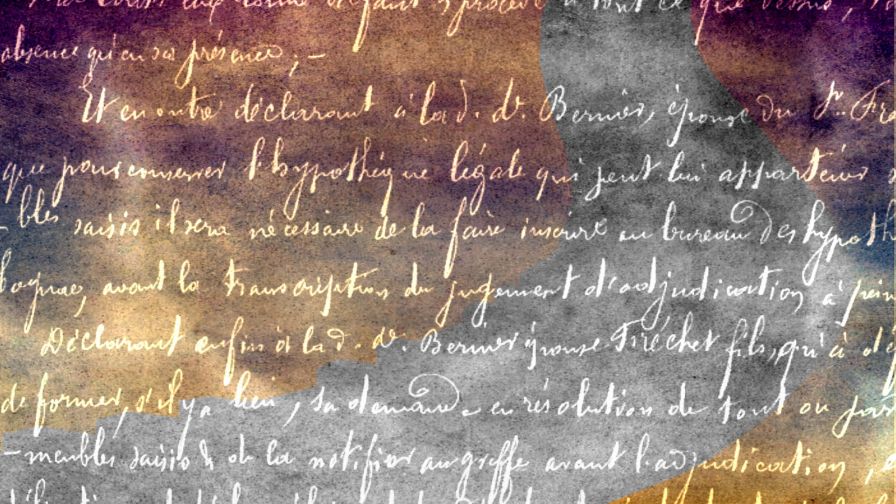 absence qu'en sa présence; —
Et en outre déclarant à la d. dᵉ. Bernier, épouse du Sr. Fré
que pour conserver l'hypothèque légale qui peut lui appartenir s
-bles saisis il sera nécessaire de la faire inscrire au bureau des hypoth
logne, avant la transcription du jugement d'adjudication à pein
Déclarant enfin à la d. dᵉ. Bernier épouse Fréchet fils, qu'à d
de former, s'il y a lieu, sa demande en résolution de tout ou par
-meubles saisis & de la notifier au greffe avant l'adjudication,